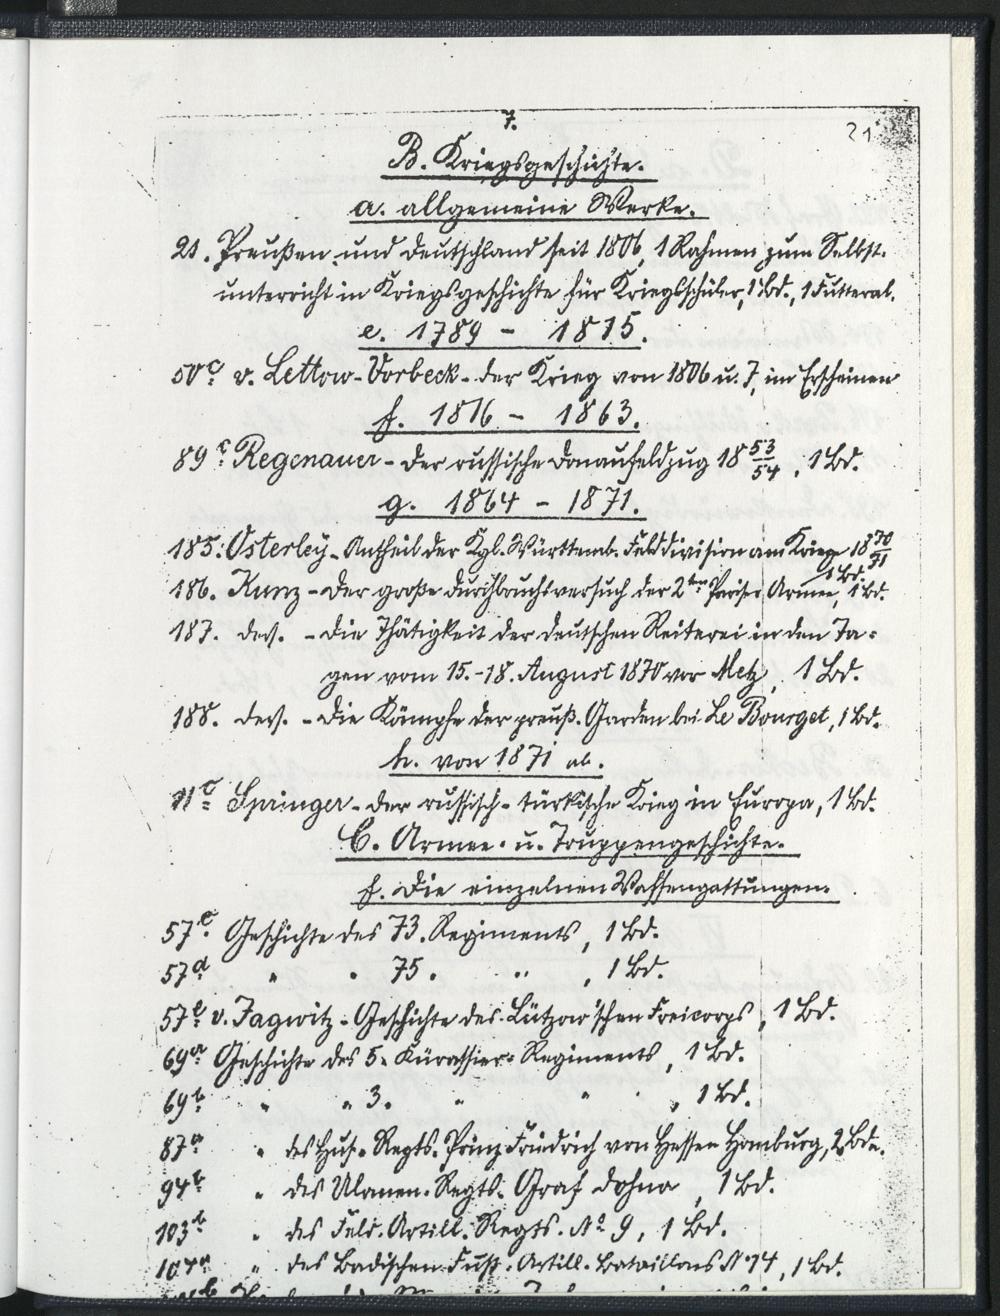 7.
21
B. Kriegsgeschichte.
a. allgemeine Werke.
21. Preußen und Deutschland seit 1806, 1 Rahmen zum Selbst-
unterricht in Kriegsgeschichte für Kriegsschüler, 1 Bd., 1 Futteral.
e. 1789 - 1815.
50c v. Lettow-Vorbeck - der Krieg von 1806 u. 7, im Erscheinen
f. 1816 - 1863.
89c Regenauer - Der russische Donaufeldzug 18 53/54, 1 Bd.
g. 1864 - 1871.
185. Osterley - Antheil der Kgl. Württemb. Felddivision am Kriege 18 70/71
1 Bd.
186. Kunz - Der große Durchbruchsversuch der 2ten Pariser Armee, 1 Bd.
187. ders. - Die Thätigkeit der deutschen Reiterei in den Ta-
gen vom 15.-18. August 1870 vor Metz, 1 Bd.
188. ders. - Die Kämpfe der preuß. Garden bei Le Bourget, 1 Bd.
h. von 1871 ab.
11c Springer - der russisch-türkische Krieg in Europa, 1 Bd.
C. Armee- u. Truppengeschichte.
f. Die einzelnen Waffengattungen.
57c. Geschichte des 73. Regiments, 1 Bd.
57d " " 75. " , 1 Bd.
57e v. Jagwitz - Geschichte des Lützow'schen Freicorps, 1 Bd.
69a Geschichte des 5. Kürassier-Regiments, 1 Bd.
69b " " 3. " " , 1 Bd.
87a " des Hus. Regts. Prinz Friedrich von Hessen Homburg, 2 Bde.
94b " des Ulanen-Regts. Graf Dohna, 1 Bd.
103b " des Feld-Artill. Regts. No 9, 1 Bd.
104a " des Badischen Fuß-Artill. Bataillons No 14, 1 Bd.